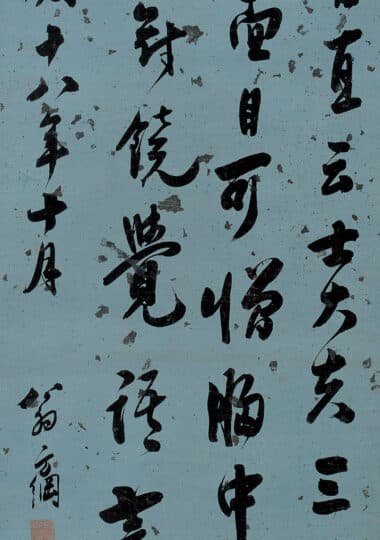 直云士大夫三
面目可憎胸中
對鏡覺語言
十八年十月
翁方綱